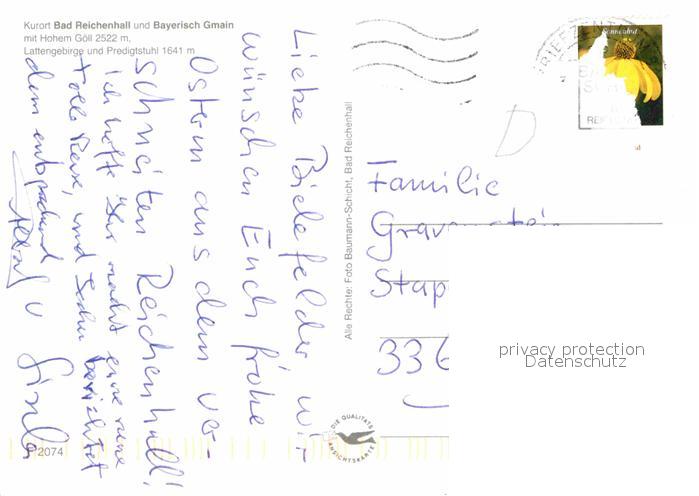 Kurort Bad Reichenhall und Bayerisch Gmain
mit Hohem Göll 2522 m,
Lattengebirge und Predigtstuhl 1641 m
Liebe Bielefelder wir
wünschen Euch frohe
Ostern aus dem ver-
schneiten Reichenhall!
Ich hoffe Ihr macht eine
tolle Reise, und
dem entsprechend
Alle Rechte: Foto Baumann-Schicht, Bad Reichenhall
BRIEFZENT
Sonnenhut
D
Familie
Grav
Stap
336
privacy protection
Datenschutz
DIE QUALITÄTS
ANSICHTSKARTE
2074